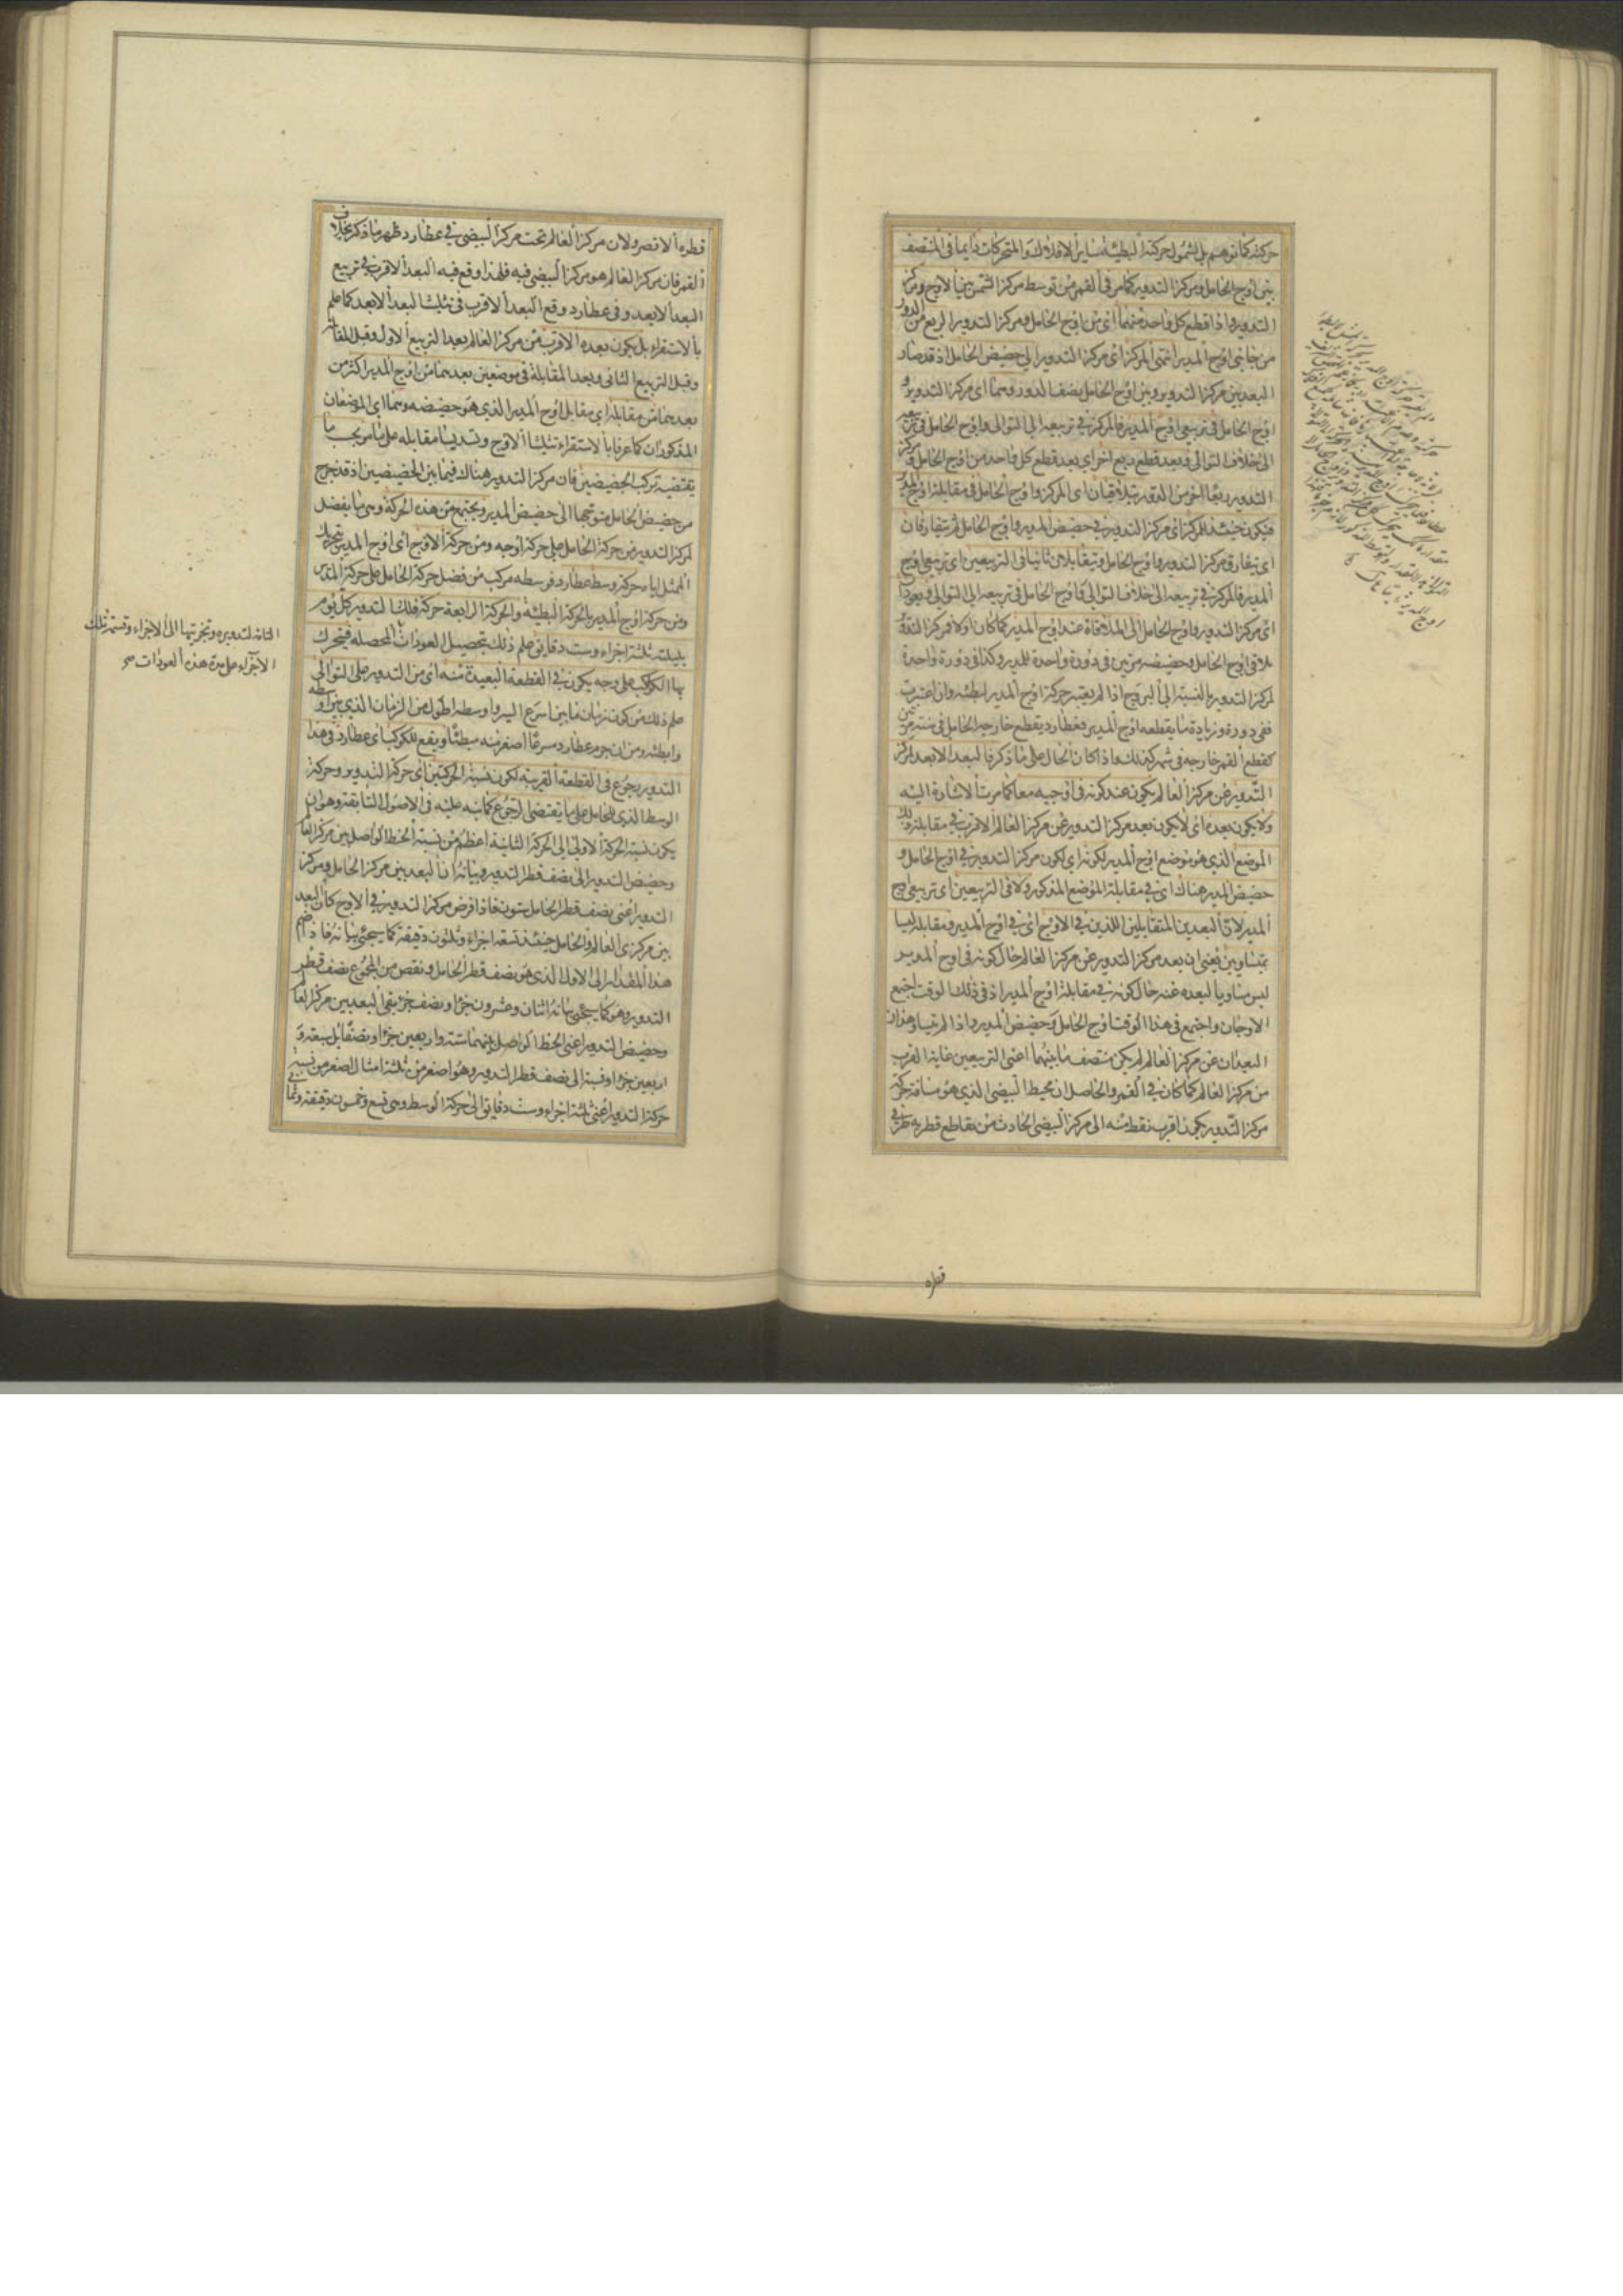 حركته كما توهم بل لشمول حركته البطيئة لساير الافلاك والمتحركات دايما في المنتصف
بين اوج الحامل ومركز التدوير كما مر في القمر من توسط مركز الشمس بين الاوج ومركز
التدوير واذا قطع كل واحد منهما اى من اوج الحامل ومركز التدوير الربع من الدور
من جانبى اوج المدير انتهى المركز اى مركز التدوير الى حضيض الحامل اذ قد صار
البعد بين مركز التدوير وبين اوج الحامل نصف الدور وهما اى مركز التدوير و
اوج الحامل في تربيعى اوج المدير فالمركز في تربيعه الى التوالى واوج الحامل في تربيعه
الى خلاف التوالى وبعد قطع ربع اخر اى بعد قطع كل واحد من اوج الحامل ومركز
التدوير ربعا اخر من الدور يتلاقيان اى المركز واوج الحامل في مقابلة اوج المدير
فيكون حينئذ المركز اى مركز التدوير في حضيض المدير واوج الحامل ثم يتفارقان
اى يتفارق مركز التدوير واوج الحامل ويتقابلان ثانيا في التربيعين اى تربيعى اوج
المدير فالمركز في تربيعه الى خلاف التوالى واوج الحامل في تربيعه الى التوالى ويعودان
اى مركز التدوير واوج الحامل الى الملاقاة عند اوج المدير كما كان اولا فمركز التدوير
يلاقى اوج الحامل وحضيضه مرتين في دورة واحدة للمدير وكذا في دورة واحدة
لمركز التدوير بالنسبة الى البروج اذا لم يعتبر حركة اوج المدير لبطئه وان اعتبرت
ففي دورة وزيادة ما يقطعه اوج المدير فعطارد يقطع خارجه الحامل في سنة مرتين
كقطع القمر خارجه في شهر كذلك واذا كان الحال على ما ذكر فالبعد الابعد لمركز
التدوير عن مركز العالم يكون عند كونه في اوجيه معا كما مرت الاشارة اليه
ولا يكون بعده اى لا يكون بعد مركز التدوير عن مركز العالم الاقرب في مقابلة ذلك
الموضع الذى هو موضع اوج المدير لكونه اى لكون مركز التدوير في اوج الحامل و
حضيض المدير هناك اى في مقابلة الموضع المذكور ولا في التربيعين اى تربيعى اوج
المدير لان البعدين المتقابلين اللذين في الاوج اى في اوج المدير ومقابله ليسا
بمتساويين يعنى ان بعد مركز التدوير عن مركز العالم حال كونه في اوج المدير
ليس مساويا لبعده عنه حال كونه في مقابلة اوج المدير اذ في ذلك الوقت اجتمع
الاوجان واجتمع في هذا الوقت اوج الحامل وحضيض المدير واذا لم يتساو هذان
البعدان عن مركز العالم لم يكن منتصف ما بينهما اعنى التربيعين غاية القرب
من مركز العالم كما كان في القمر والحاصل ان محيط البيضى الذى هو مسافة حركة
مركز التدوير يكون اقرب نقطة منه الى مركز البيضى الحادث من تقاطع قطريه طرفي
قطره
قطره الاقصر ولان مركز العالم تحت مركز البيضى في عطارد ظهر ما ذكر بخلاف
القمر فان مركز العالم هو مركز البيضى فيه فلهذا وقع فيه البعد الاقرب في تربيع
البعد الابعد وفي عطارد وقع البعد الاقرب في تثليث البعد الابعد كما علم
بالاستقراء بل يكون بعده الاقرب من مركز العالم بعد التربيع الاول وقبل المقابلة
وقبل التربيع الثانى وبعد المقابلة في موضعين بعدهما من اوج المدير اكثر من
بعدهما من مقابله اى مقابل اوج المدير الذى هو حضيضه وهما اى الموضعان
المذكوران كما عرفا بالاستقراء تثليثا الاوج وتسديسا مقابله على ما مر بحسب ما
يقتضيه تركب الحضيضين فان مركز التدوير هناك فيما بين الحضيضين اذ قد خرج
من حضيض الحامل متوجها الى حضيض المدير ويجتمع من هذه الحركة وهى ما يفضل
لمركز التدوير من حركة الحامل على حركة اوجه ومن حركة الاوج اى اوج المدير بتحريك
الممثل اياه حركة وسط عطارد فوسطه مركب من فضل حركة الحامل على حركة المدير
ومن حركة اوج المدير بالحركة البطيئة والحركة الرابعة حركة فلك التدوير كل يوم
بليلته ثلثة اجزاء وست دقايق علم ذلك بتحصيل العودات المحصلة فيتحرك
بها الكوكب على وجه يكون في القطعة البعيدة منه اى من التدوير على التوالى
علم ذلك من كون زمان ما بين اسرع السير واوسطه اطول من الزمان الذى بين اوسطه
وابطئه ومن ان جرم عطارد مسرعا اصغر منه مبطئا ويقع للكوكب اى عطارد في هذا
التدوير رجوع في القطعة القريبة لكون نسبة الحركتين اى حركة التدوير وحركة
الوسط الذى للحامل على ما يقتضى الرجوع كما نبه عليه في الاصول السابقة وهو ان
يكون نسبة الحركة الاولى الى الحركة الثانية اعظم من نسبة الخط الواصل بين مركز العالم
وحضيض التدوير الى نصف قطر التدوير وبيانه ان البعد بين مركز الحامل ومركز
التدوير اعنى نصف قطر الحامل ستون فاذا فرض مركز التدوير في الاوج كان البعد
بين مركزى العالم والحامل حينئذ تسعة اجزاء وثلثون دقيقة كما سيجئ بيانه فاذا ضم
هذا المقدار الى الاول الذى هو نصف قطر الحامل ونقص من المجموع نصف قطر
التدوير وهو كما سيجئ بيانه اثنان وعشرون جزءا ونصف جزء بقى البعد بين مركز العالم
وحضيض التدوير اعنى الخط الواصل بينهما ستة واربعين جزءا ونصفا بل سبعة و
اربعين جزءا ونسبته الى نصف قطر التدوير وهو اصغر من ثلثة امثال اصغر من نسبة
حركة التدوير اعنى ثلثة اجزاء وست دقايق الى حركة الوسط وهى تسع وخمسون دقيقة وثمانى
التامة لتدويره وتجزيتها الى الاجزاء وقسمة تلك
الاجزاء على مدة هذه العودات صح